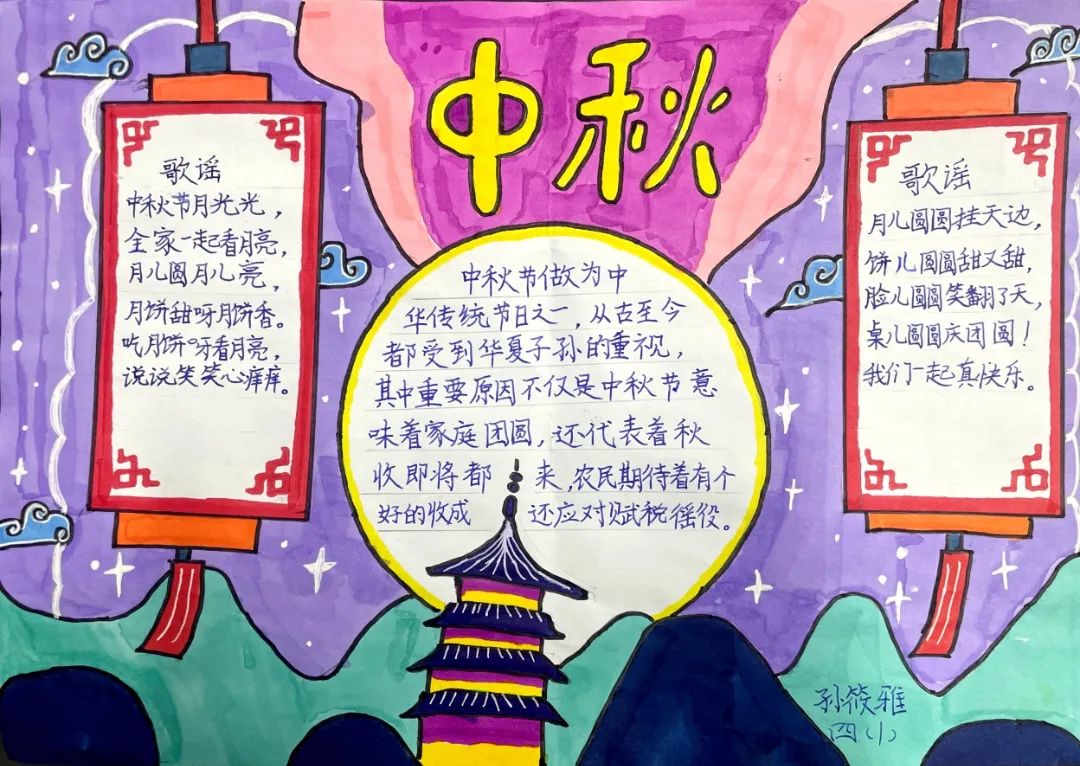 中秋
歌谣
中秋节月光光，
全家一起看月亮，
月儿圆月儿亮，
月饼甜呀月饼香。
吃月饼呀看月亮，
说说笑笑心痒痒。
中秋节做为中
华传统节日之一，从古至今
都受到华夏子孙的重视，
其中重要原因不仅是中秋节意
味着家庭团圆，还代表着秋
收即将都来，农民期待着有个
好的收成还应对赋税徭役。
歌谣
月儿圆圆挂天边，
饼儿圆圆甜又甜，
脸儿圆圆笑翻了天，
桌儿圆圆庆团圆！
我们一起真快乐。
孙筱雅
四（1）